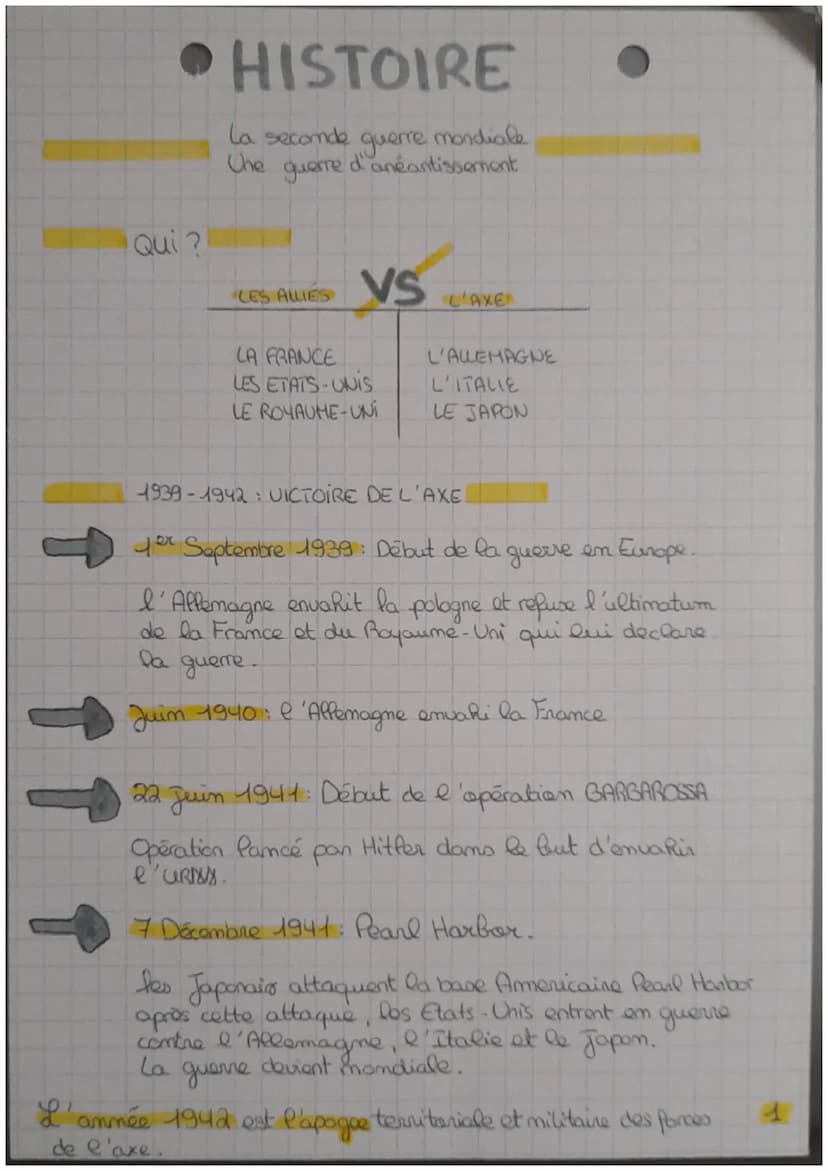 HISTOIRE
La seconde guerre mondiale
Une guerre d'anéantissement
Qui ?
LES ALLIÉS VS L'AXE
LA FRANCE L'ALLEMAGNE
LES ETATS-UNIS L'ITALIE
LE ROYAUME-UNI LE JAPON
1939-1942 : VICTOIRE DE L'AXE
1er Septembre 1939 : Début de la guerre en Europe.
l'Allemagne envahit la pologne et refuse l'ultimatum
de la France et du Royaume-Uni qui lui declare
la guerre.
Juin 1940 : l'Allemagne envahi la France
22 Juin 1941 : Début de l'opération BARBAROSSA
Opération lancé par Hitler dans le but d'envahir
l'URSS.
7 Décembre 1941 : Pearl Harbor.
les Japonais attaquent la base Americaine Pearl Harbor
après cette attaque, les Etats-Unis entrent en guerre
contre l'Allemagne, l'Italie et le Japon.
La guerre devient mondiale.
L'année 1942 est l'apogee territoriale et militaire des forces
de l'axe.
1